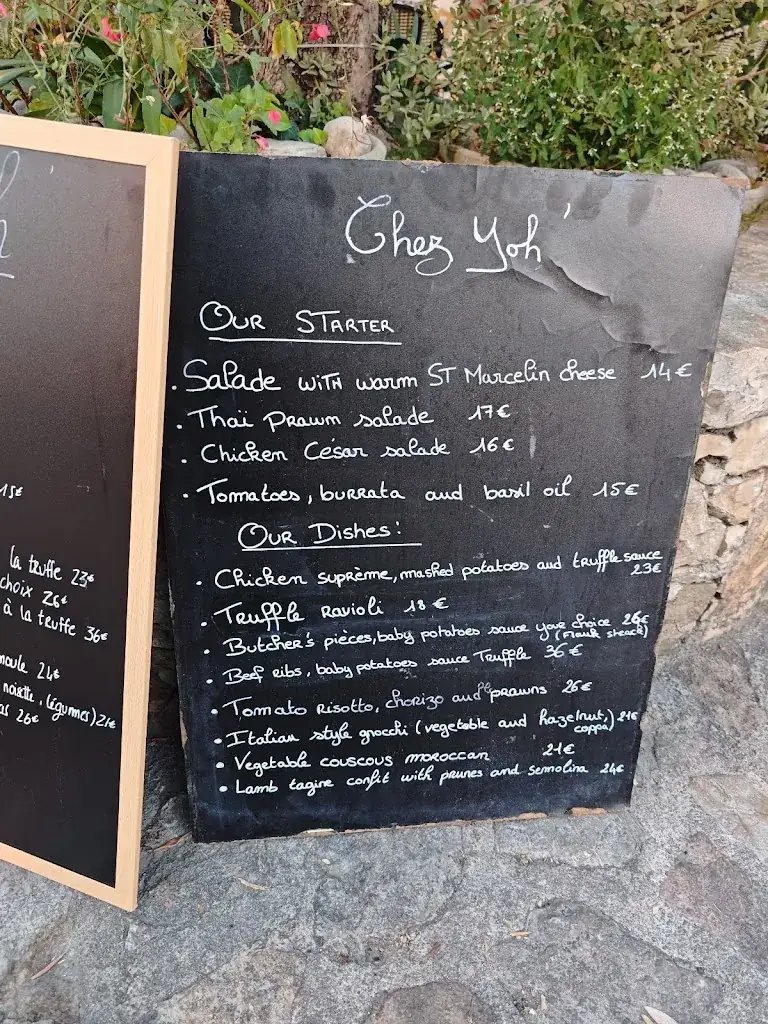 15€
la truffe 23€
choix 26€
à la truffe 36€
moule 24€
noisette, légumes) 21€
26€
Chez Yoh'
OUR STARTER
. Salade with warm ST Marcelin cheese 14€
. Thaï Prawn salade 17€
. Chicken César salade 16€
. Tomatoes, burrata and basil oil 15€
OUR DISHES:
. Chicken suprème, mashed potatoes and truffle sauce
23€
. Truffle Ravioli 18€
. Butcher's pièces, baby potatoes sauce your choice 26€
(Flank steack)
. Beef ribs, baby potatoes sauce Truffle 36€
. Tomato Risotto, chorizo and prawns 26€
. Italian style gnocchi (vegetable and hazelnut,) 21€
coppa
. Vegetable couscous moroccan 21€
. Lamb tagine confit with prunes and semolina 24€